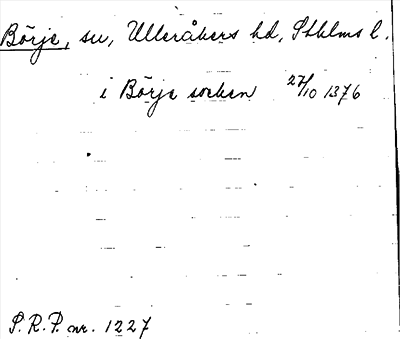 Börje, sn, Ulleråkers hd, Sthlms l.
i Börje socken 27/10 1376
S.R.P. nr. 1227